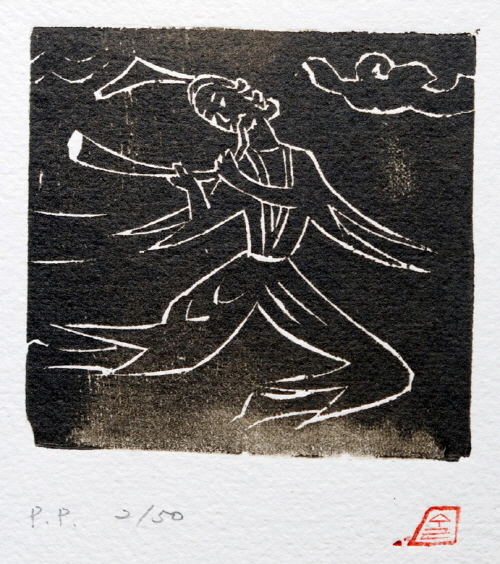 P.P. 2/50